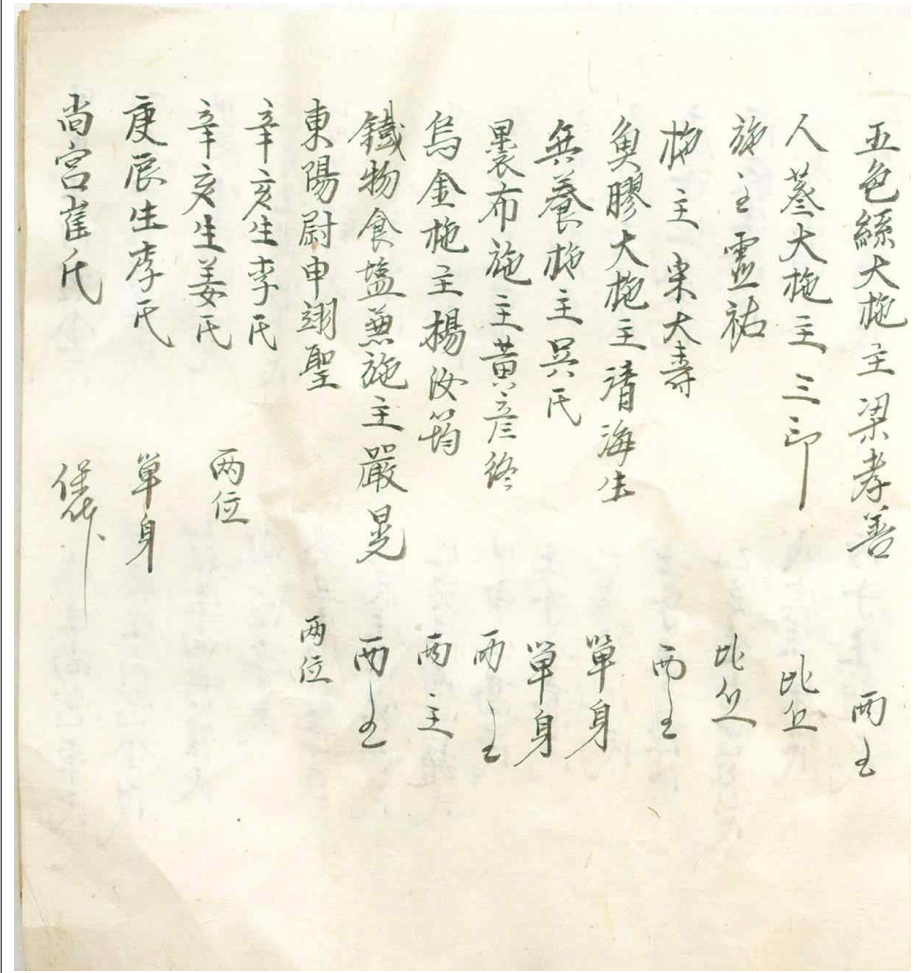 五色絲大施主梁孝善 兩主
人蔘大施主三印 比丘
施主靈祐 比丘
施主宋大壽 兩主
魚膠大施主清海生 單身
供養施主吳氏 單身
裹布施主黃彦終 兩主
烏金施主楊汝筠 兩主
鐵物食塩兼施主嚴晃 兩主
東陽尉申翊聖 兩位
辛亥生李氏
辛亥生姜氏 兩位
庚辰生李氏 單身
尚宮崔氏 保体